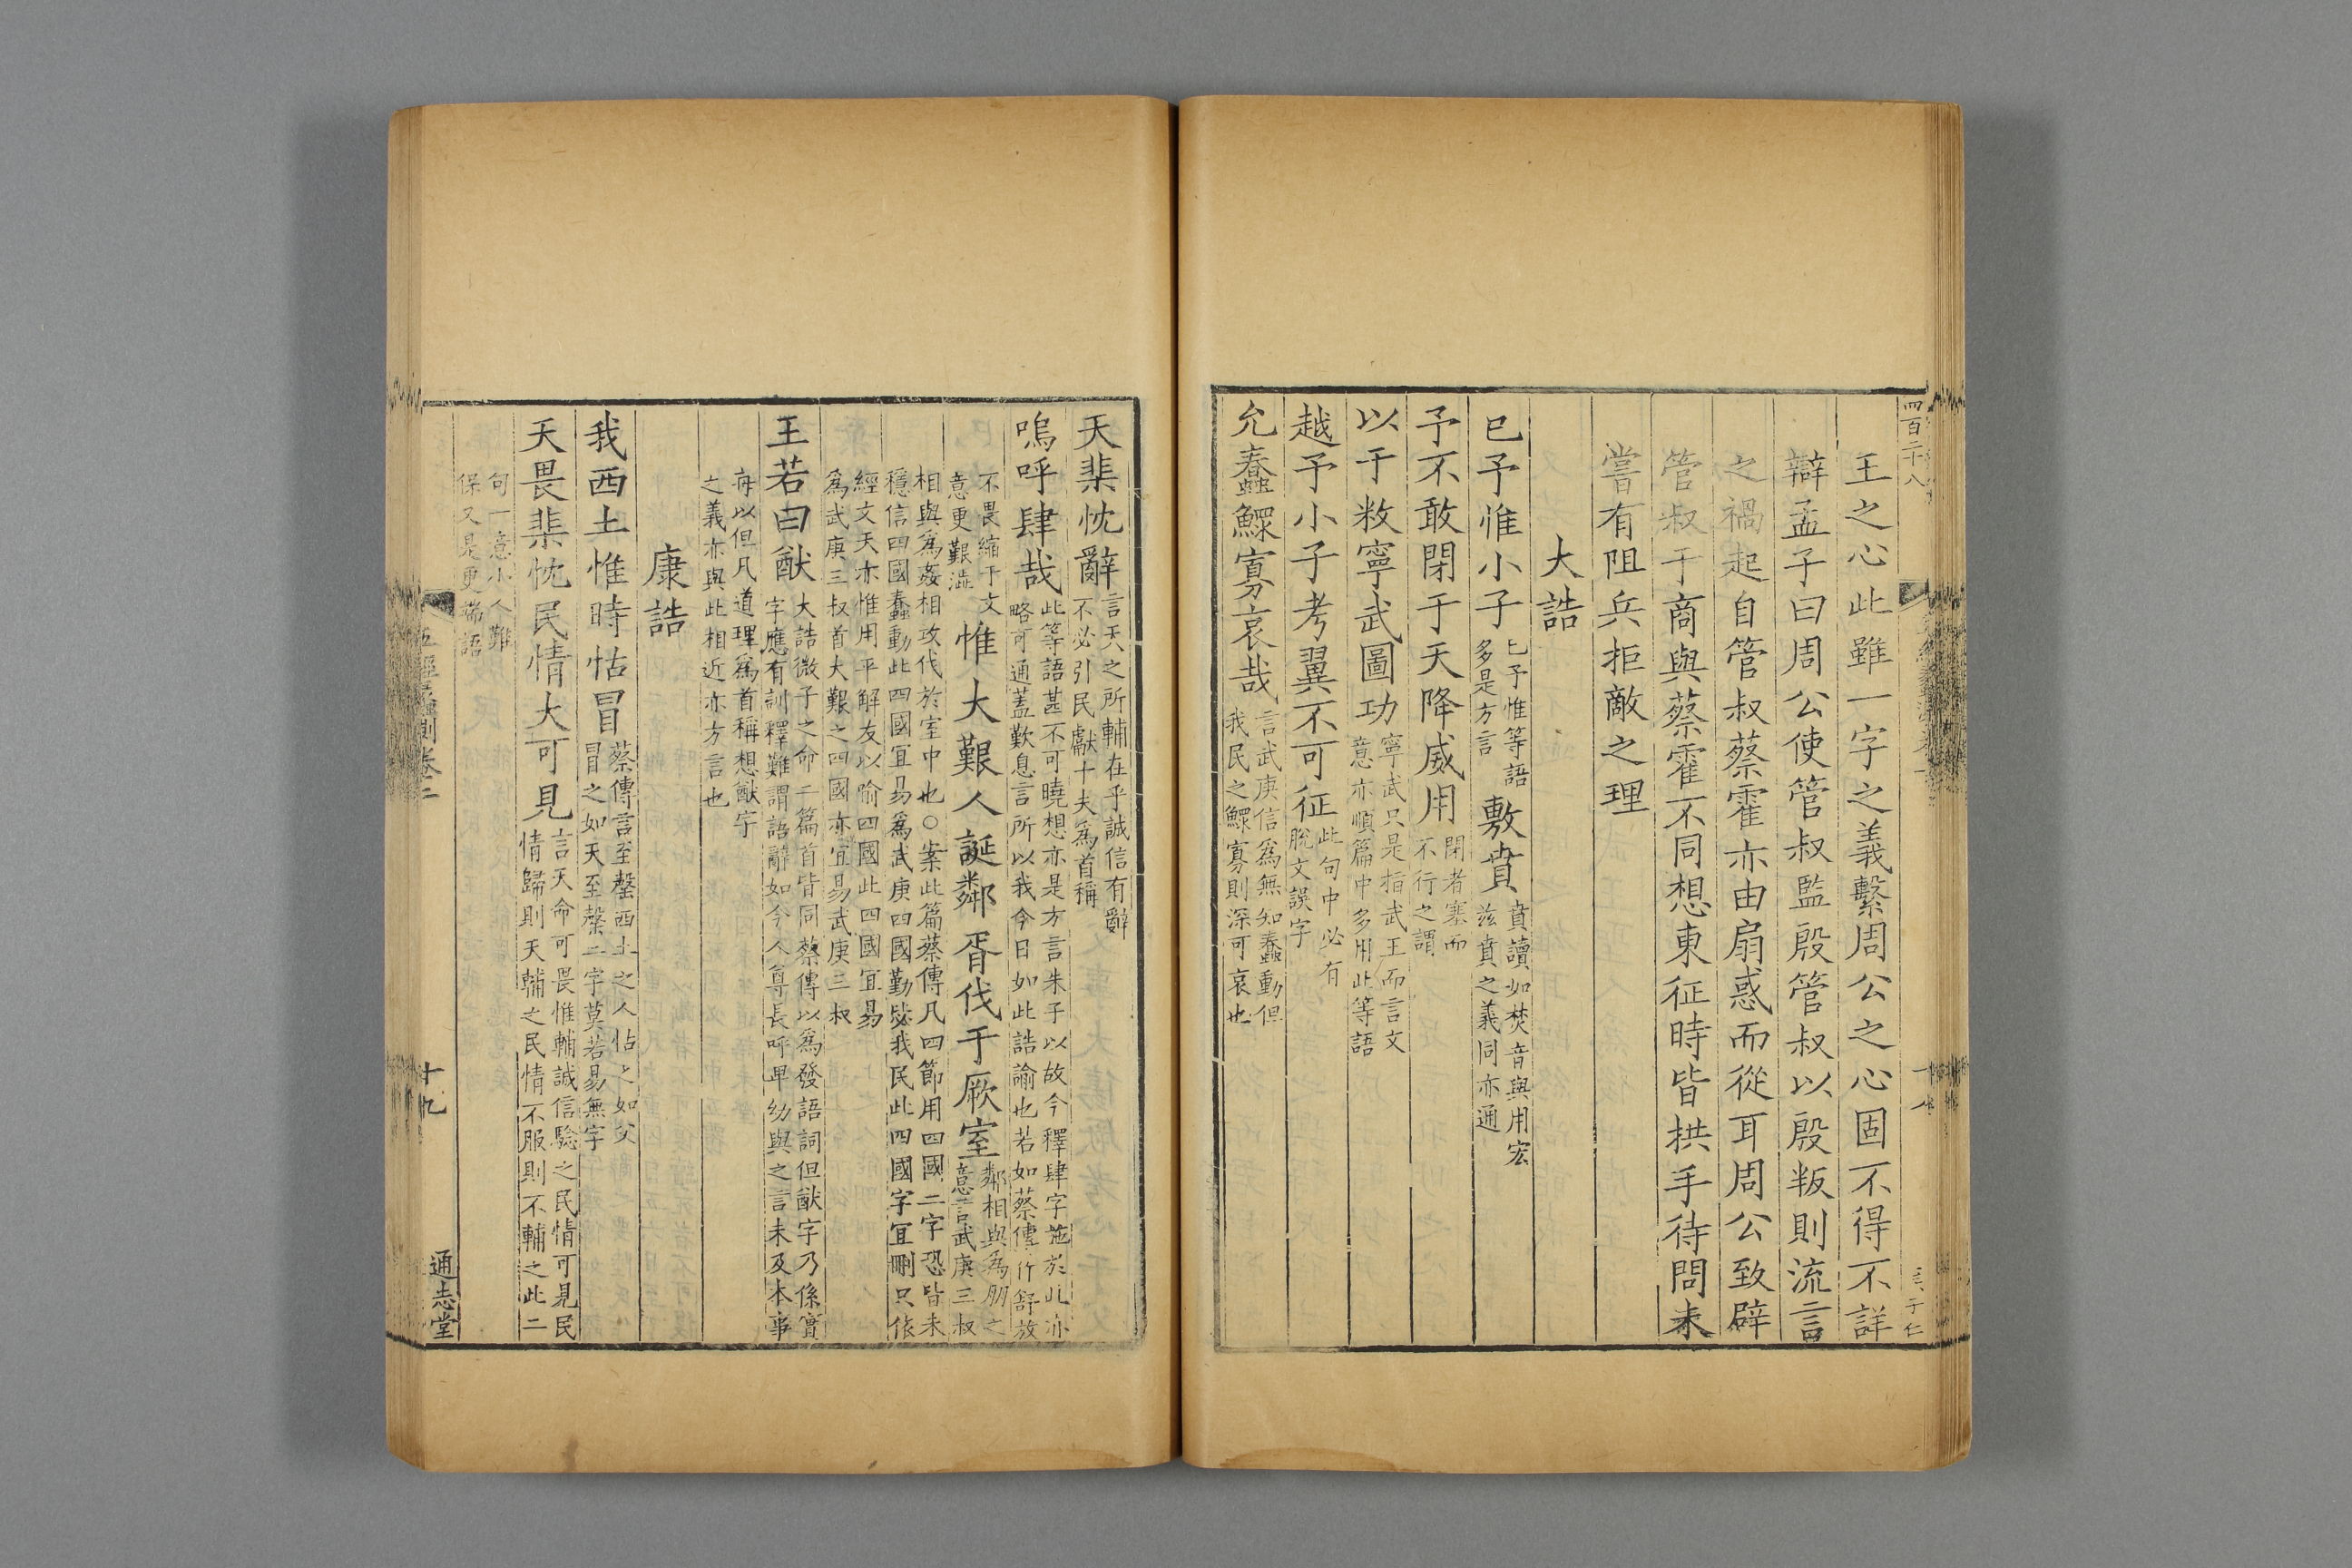 四百二十八
王之心此雖一字之義繫周公之心固不得不詳
辯孟子曰周公使管叔監殷管叔以殷叛則流言
之禍起自管叔蔡霍亦由扇惑而從耳周公致辟
管叔于商與蔡霍不同想東征時皆拱手待問未
嘗有阻兵拒敵之理
大誥
已予惟小子
已予惟等語
多是方言
敷賁
賁讀如焚音與用宏
茲賁之義同亦通
予不敢閉于天降威用
閉者塞而
不行之謂
以于敉寧武圖功
寧武只是指武王而言文
意亦順篇中多用此等語
越予小子考翼不可征
此句中必有
脫文誤字
允蠢鰥寡哀哉
言武庚信為無知蠢動但
我民之鰥寡則深可哀也
天棐忱辭
言天之所輔在乎誠信有辭
不必引民獻十夫為首稱
嗚呼肆哉
此等語甚不可曉想亦是方言朱子以故今釋肆字施於此亦
略可通蓋歎息言所以我今日如此誥諭也若如蔡傳作舒放
不畏縮于文
意更艱澁
惟大艱人誕鄰胥伐于厥室
鄰相與為朋之
意言武庚三叔
相與為姦相攻伐於室中也○案此篇蔡傳凡四節用四國二字恐皆未
穩信四國蠢動此四國宜易為武庚四國勤毖我民此四國字宜刪只作
經文天亦惟用平解友以喻四國此四國宜易
為武庚三叔首大艱之四國亦宜易武庚三叔
王若曰猷
大誥微子之命二篇首皆同蔡傳以為發語詞但猷字乃係實
字應有訓釋難謂語辭如今人尊長呼卑幼與之言未及本事
每以但凡道理為首稱想猷字
之義亦與此相近亦方言也
康誥
我西土惟時怙冒
蔡傳言至罄西土之人怙之如父
冒之如天至罄二字莫若易無字
天畏棐忱民情大可見
言天命可畏惟輔誠信驗之民情可見民
情歸則天輔之民情不服則不輔之此二
句一意小人難
保又是更端語
五經蠡測卷二
十九
通志堂